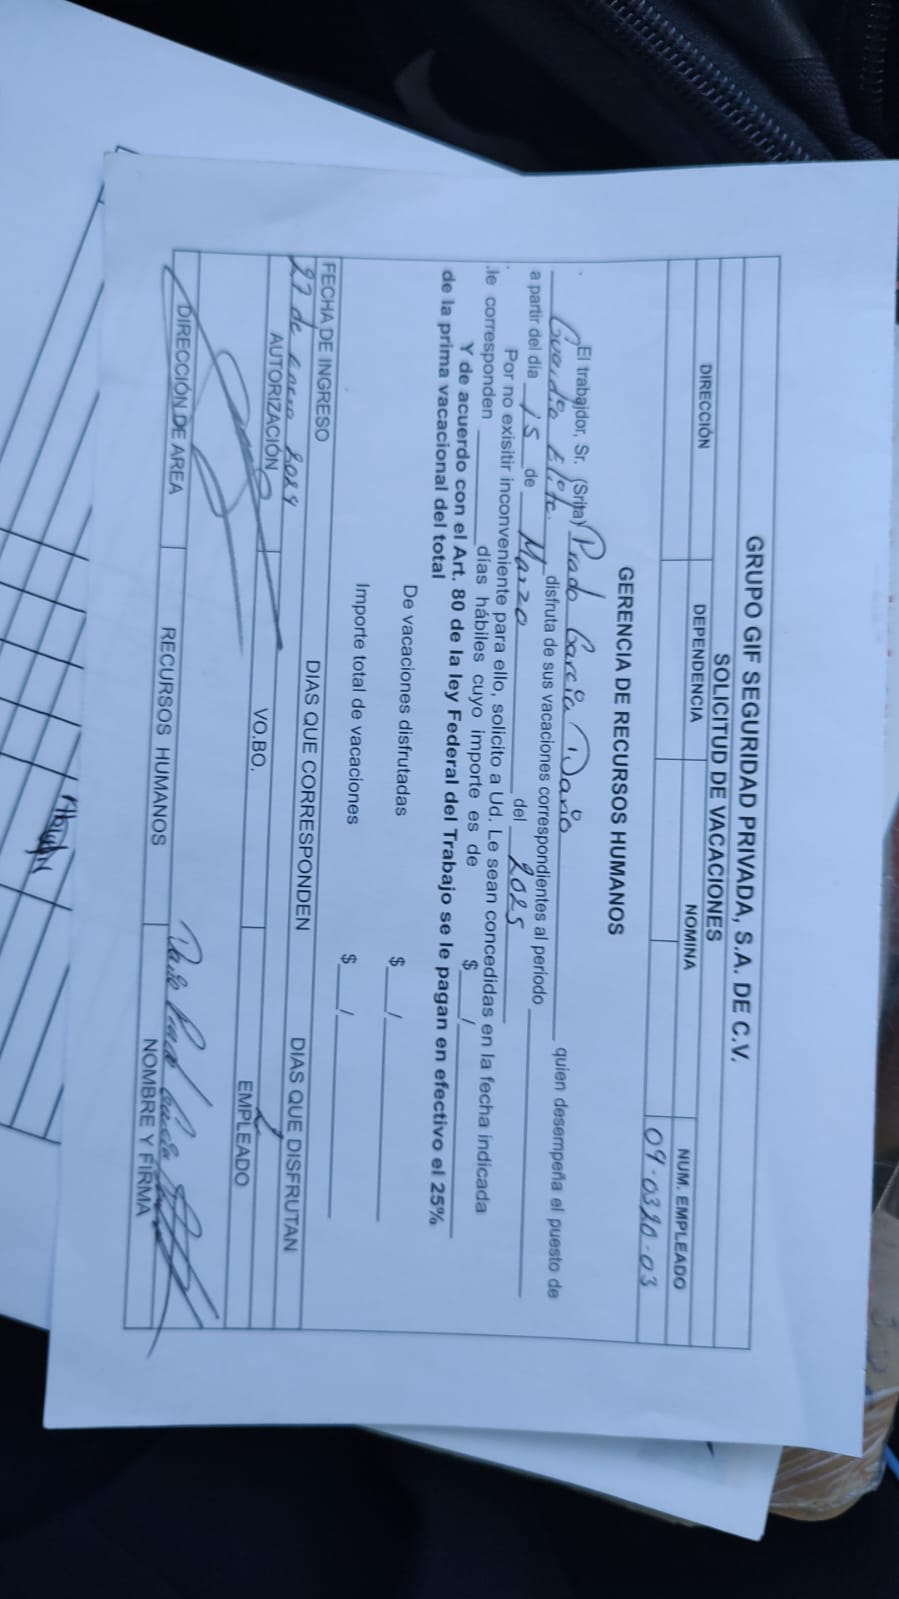 GRUPO GIF SEGURIDAD PRIVADA, S.A. DE C.V.
SOLICITUD DE VACACIONES
DIRECCIÓN DEPENDENCIA NOMINA NUM. EMPLEADO
09-0320-03
GERENCIA DE RECURSOS HUMANOS
El trabajdor, Sr. (Srita) Prado Garcia Dario quien desempeña el puesto de
Guardia Elite disfruta de sus vacaciones correspondientes al período
a partir del día 15 de Marzo del 2025
Por no exisitir inconveniente para ello, solicito a Ud. Le sean concedidas en la fecha indicada
.le corresponden días hábiles cuyo importe es de $ /
Y de acuerdo con el Art. 80 de la ley Federal del Trabajo se le pagan en efectivo el 25%
de la prima vacacional del total
De vacaciones disfrutadas $ /
Importe total de vacaciones $ /
FECHA DE INGRESO DIAS QUE CORRESPONDEN DIAS QUE DISFRUTAN
27 de Enero 2024
AUTORIZACIÓN VO.BO. EMPLEADO
Dario Prado Garcia
DIRECCIÓN DE AREA RECURSOS HUMANOS NOMBRE Y FIRMA